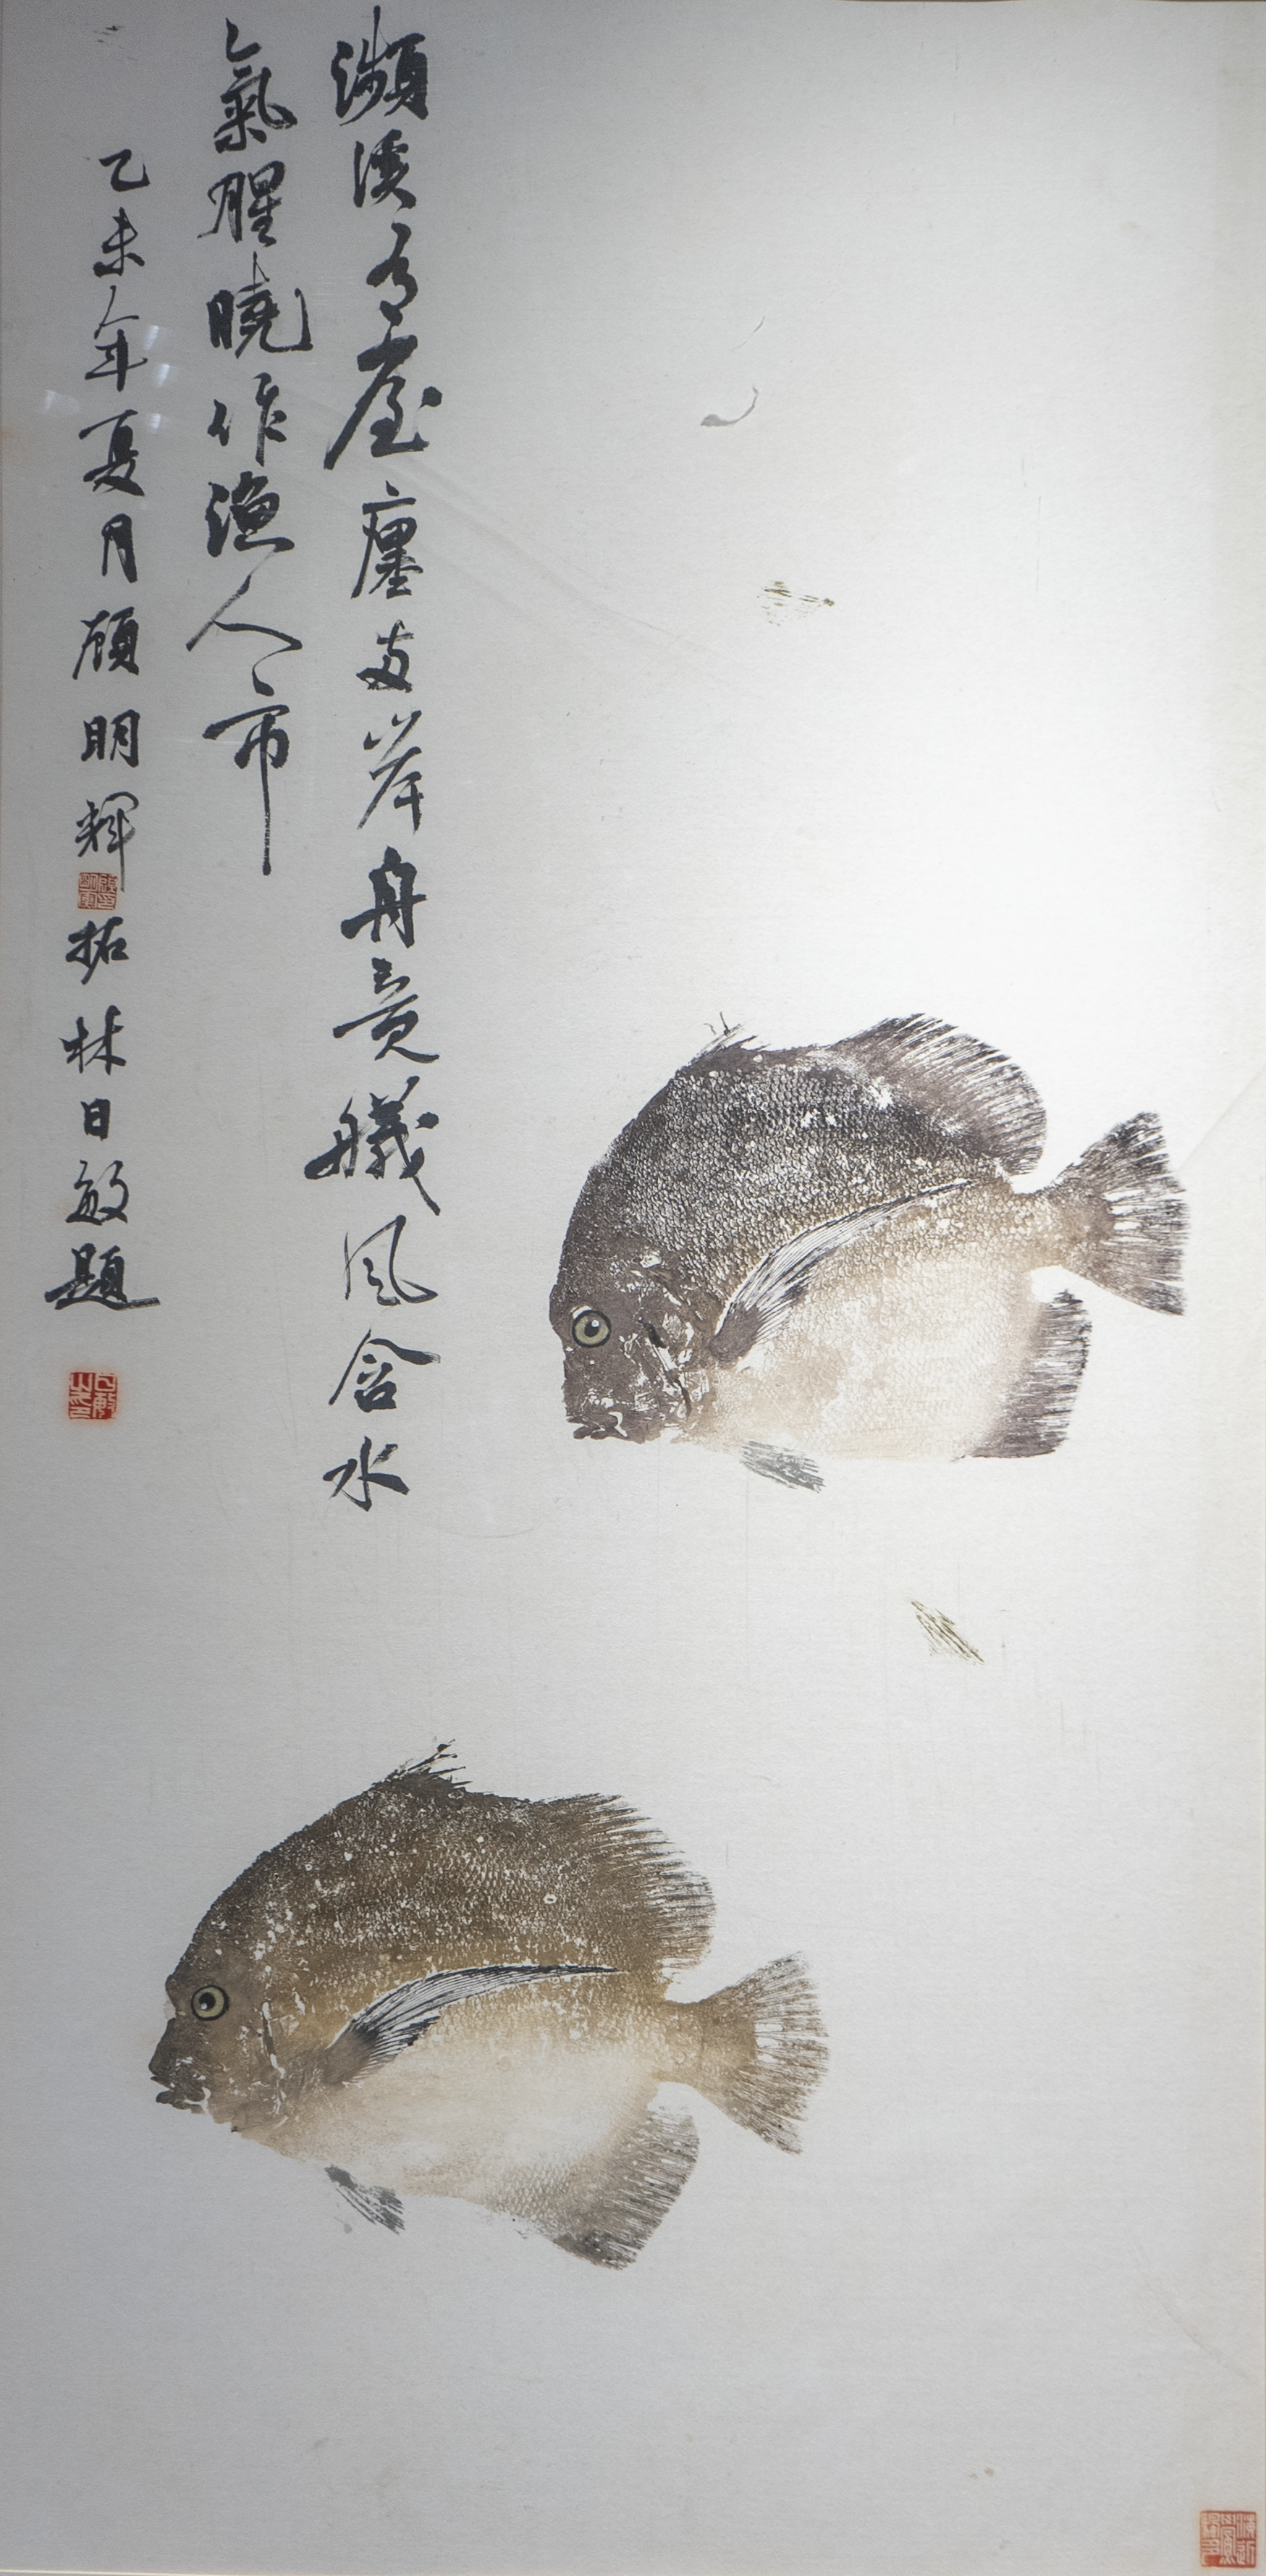 瀕溪有屋廛岸舟竟艤風含水
氣腥曉作漁人市
乙未年夏月顧明輝拓林日敏題